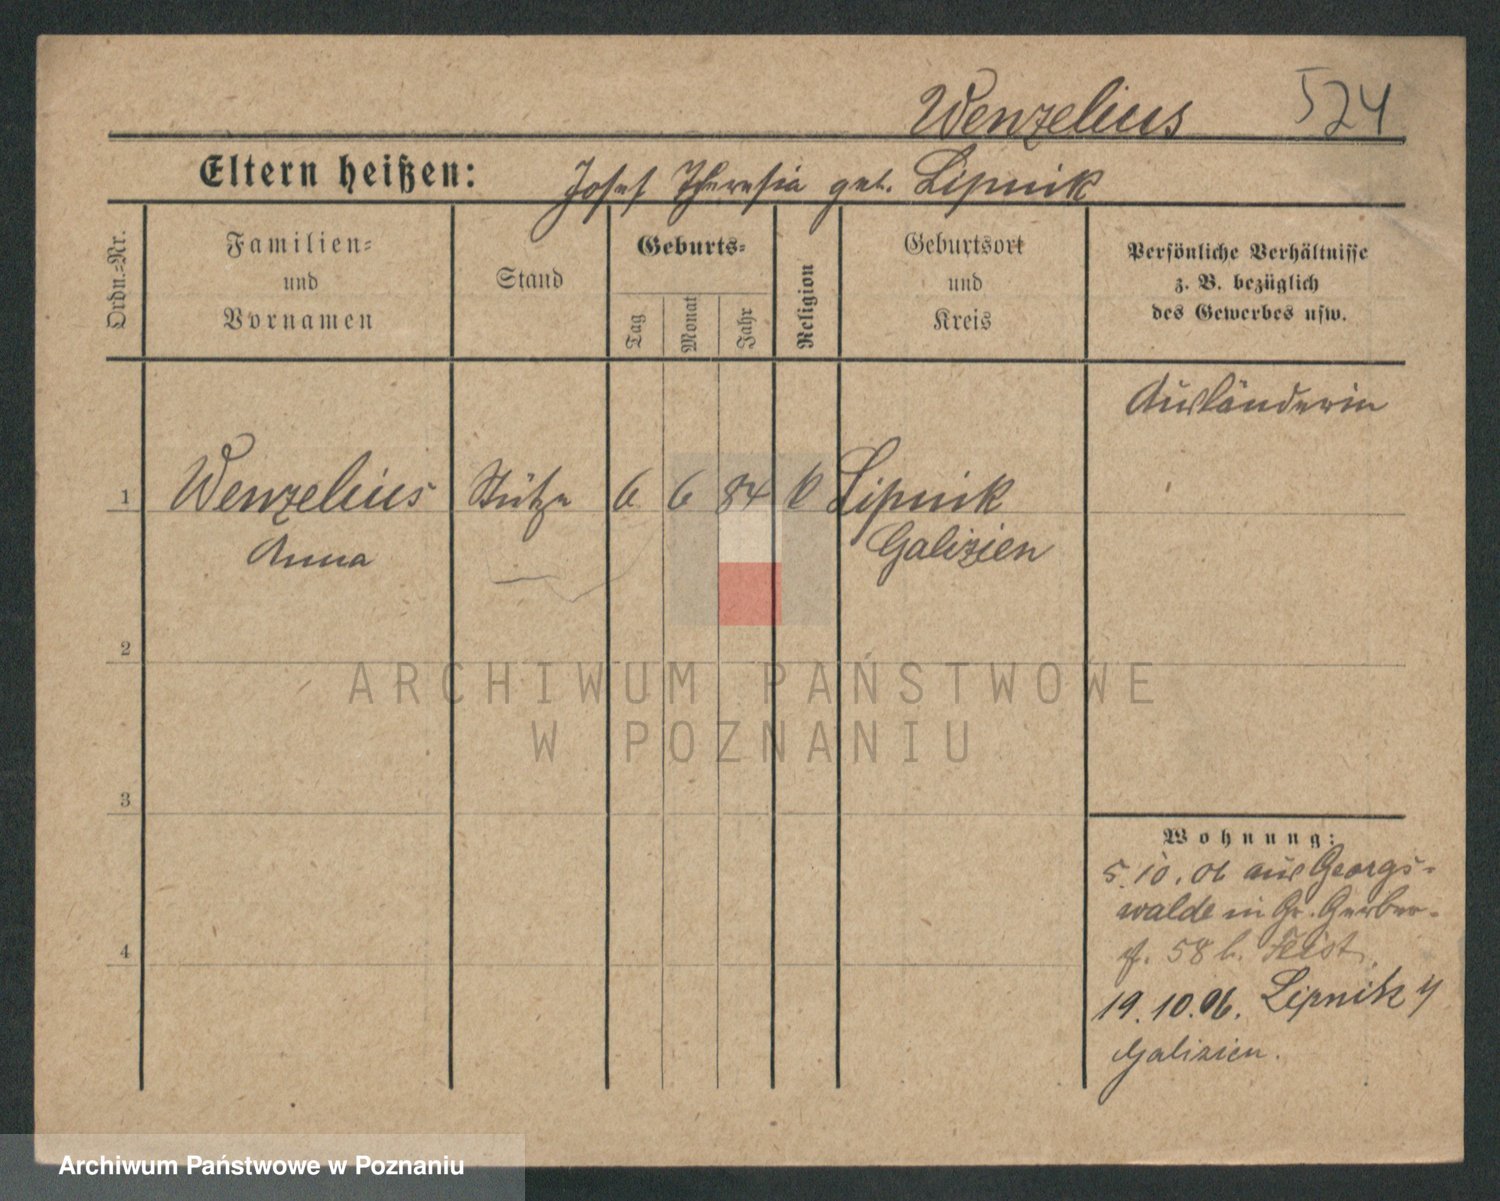 Wenzelius 524
Eltern heißen: Josef Theresia geb. Lipnik
Ordn.-Nr.
Familien-
und
Vornamen
Stand
Geburts-
Tag
Monat
Jahr
Religion
Geburtsort
und
Kreis
Persönliche Verhältnisse
z. B. bezüglich
des Gewerbes usw.
Ausländerin
1 Wenzelius Stütze 6 6 84 k Lipnik
Anna Galizien
2
3
4
Wohnung:
5.10.06 aus Georgs-
walde in Gr. Gerber-
58 b. Feist.
19.10.06. Lipnik
Galizien.
ARCHIWUM PAŃSTWOWE
W POZNANIU
Archiwum Państwowe w Poznaniu